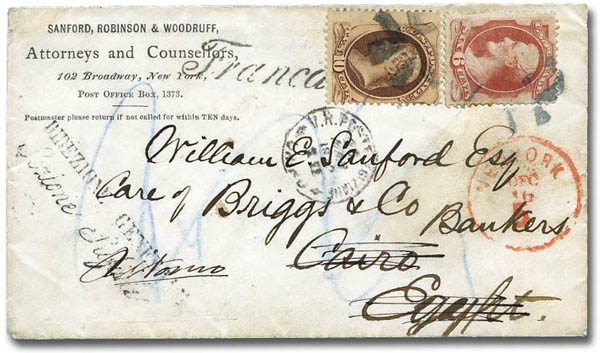 SANFORD, ROBINSON & WOODRUFF,
Attorneys and Counsellors,
102 Broadway, New York,
POST OFFICE BOX, 1373.
Postmaster please return if not called for within TEN days.
Franca
DIREZIONE GENERALE
William E Sanford Esq
Care of Briggs & Co Bankers
Cairo
Egypt.
YORK
DEC